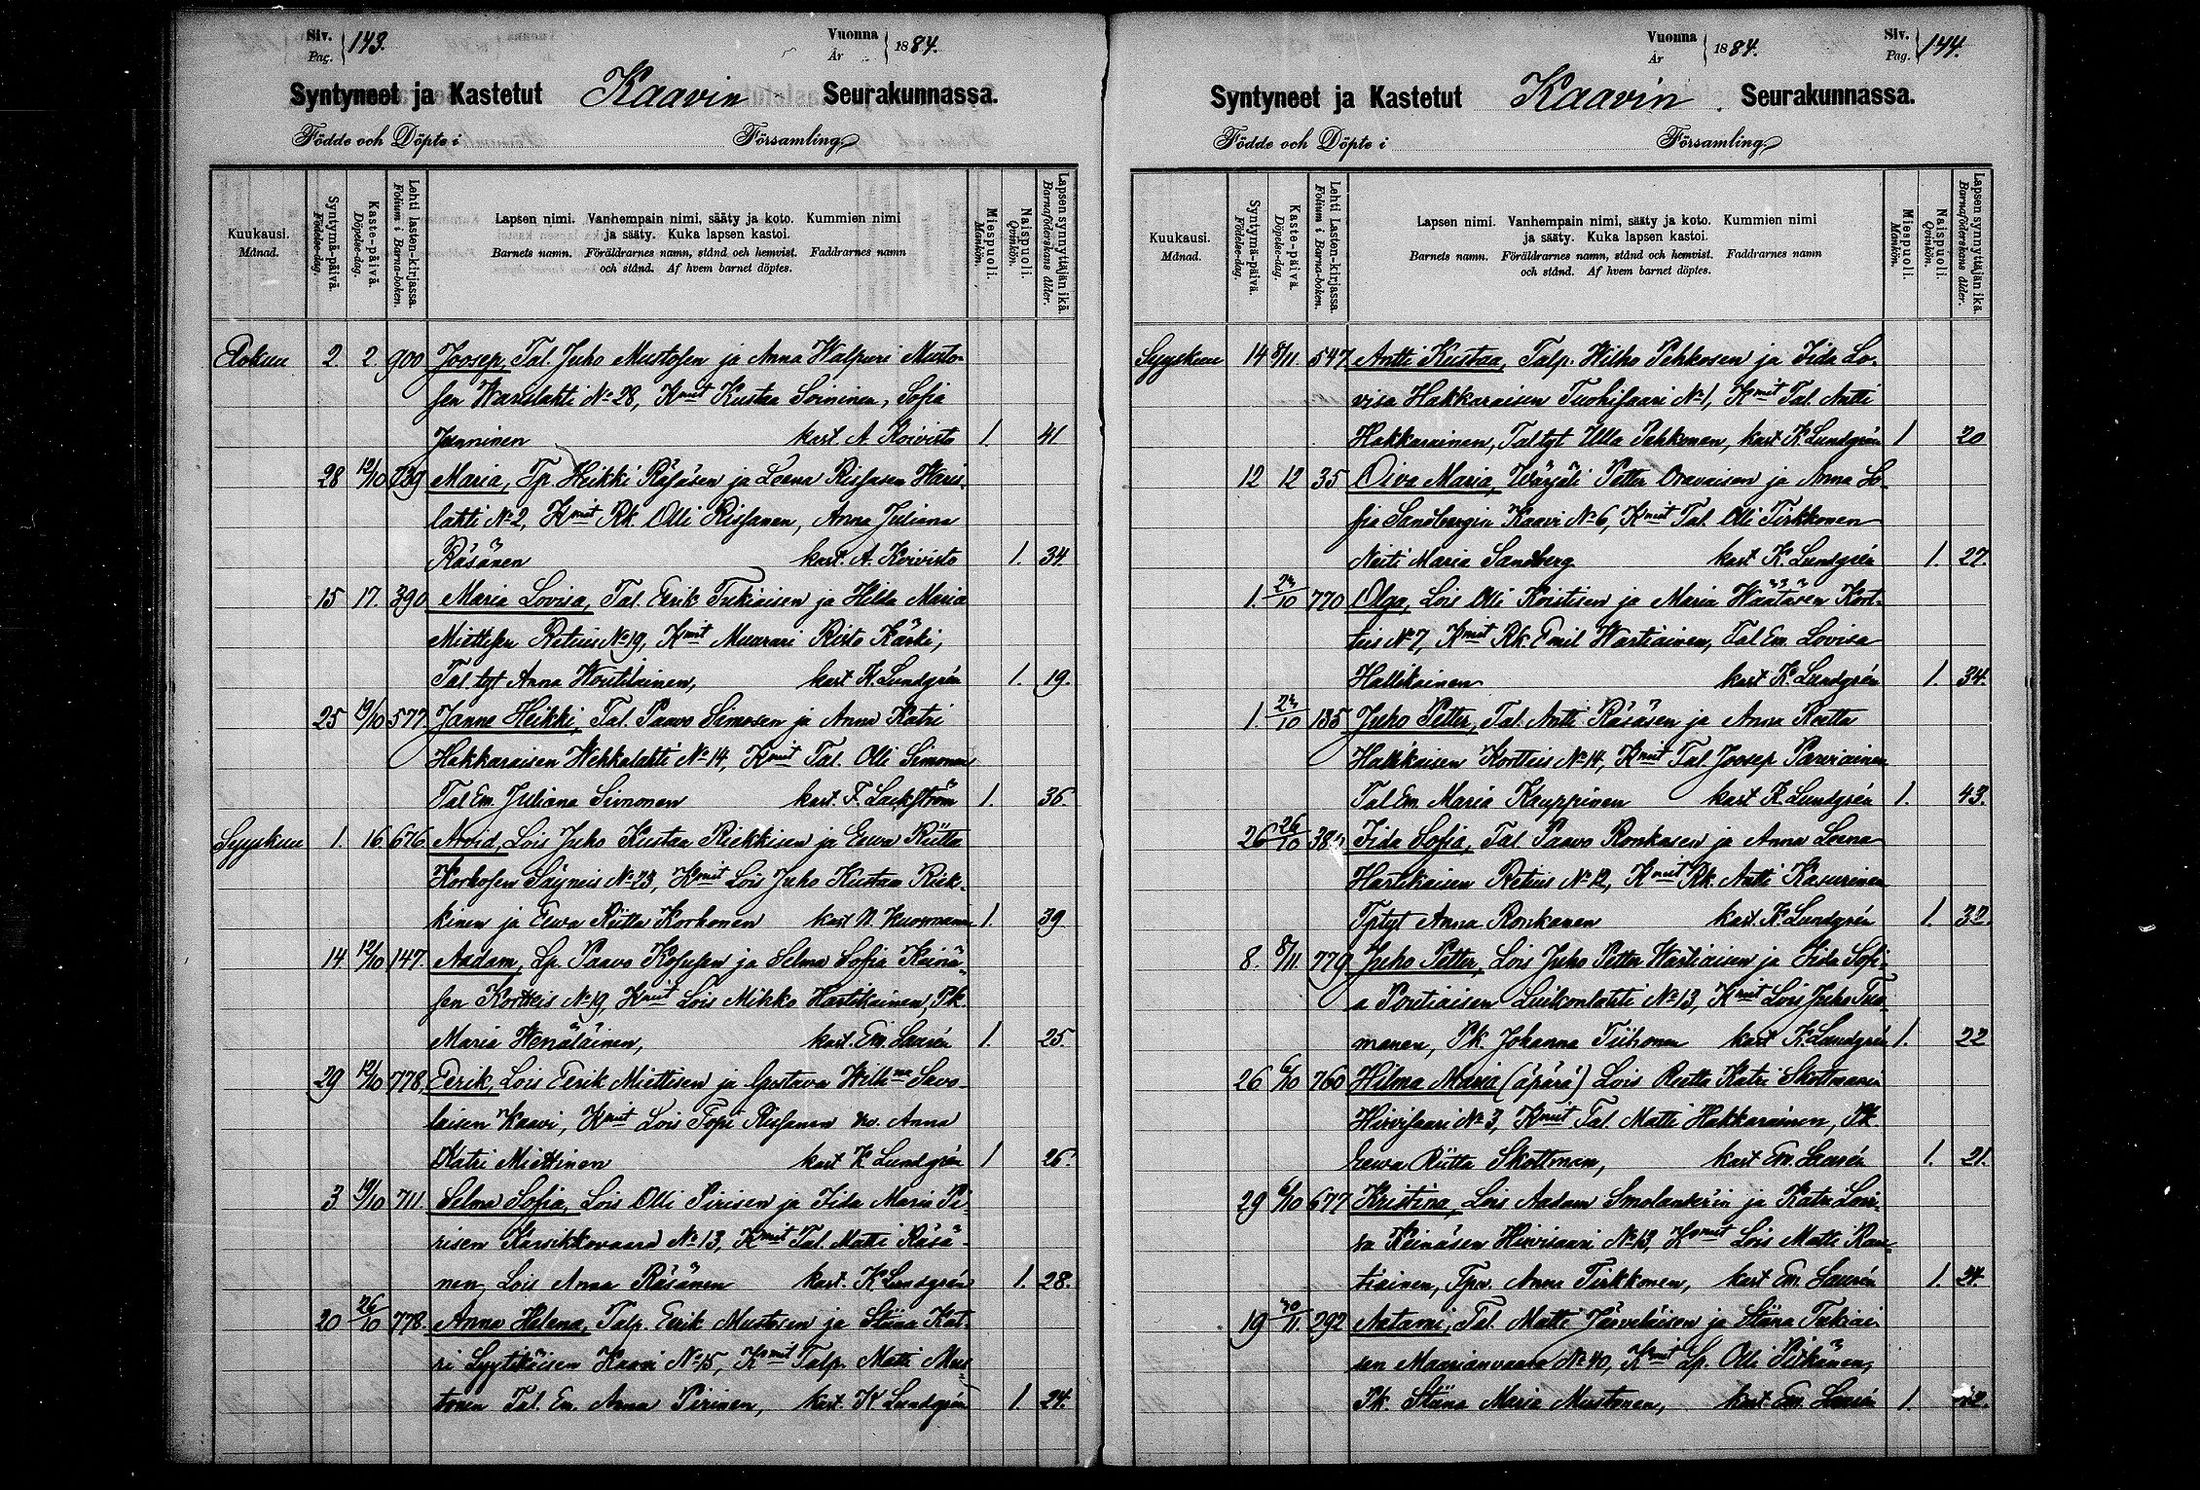 Siv. Pag. 143. Vuonna År 1884.
Syntyneet ja Kastetut Kaavin Seurakunnassa.
Födde och Döpte i Församling
Kuukausi. Månad.
Syntymä-päivä. Födelse-dag.
Kaste-päivä. Döpelse-dag.
Lehti lasten-kirjassa. Folium i Barna-boken.
Lapsen nimi. Vanhempain nimi, sääty ja koto. Kummien nimi
ja sääty. Kuka lapsen kastoi.
Barnets namn. Föräldrarnes namn, stånd och hemvist. Faddrarnes namn
och stånd. Af hvem barnet döptes.
Miespuoli. Mankön.
Naispuoli. Qvinkön.
Lapsen synnyttäjän ikä. Barnaföderskans ålder.
Elokuu 2. 2. 900 Joosep, Tal. Juho Mustosen ja Anna Walpuri Musto-
sen Wasulahti No 28, Kmit Kustaa Soininen, Sofia
Junninen kast. A. Koivisto 1 41
28 12/10 739 Maria, Tp. Heikki Räsäsen ja Loena Rissasen Haris-
lahti No 2, Kmit Rk. Olli Rissanen, Anna Juliana
Räsänen kast. A. Koivisto 1. 34
15 17. 390 Maria Lovisa, Tal. Eerik Tukiaisen ja Hilda Maria
Miettisen Retuis No 19, Kmit Muurari Risto Kärki,
Tal. tyt Anna Woutilainen, kast K. Lundgrén 1. 19.
25 19/10 577 Janne Heikki, Tal. Paavo Simosen ja Anna Katri
Hakkaraisen Wehkalahti No 14, Kmit Tal. Olli Simonen
Tal. Em. Juliana Simonen kast. F. Lackström 1. 36.
Syyskuu 1. 16 676 Arvid, Lois Juho Kustaa Riekkisen ja Eewa Riitta
Korhosen Säyneis No 23, Kmit Lois Juho Kustaa Riek-
kinen ja Eewa Riitta Korhonen kast N. Kuosmanen 1. 39
14 12/10 147. Aadam, Lp. Paavo Kososen ja Selma Sofia Keinä-
sen Kortteis No 19, Kmit Lois Mikko Hartikainen, Pk.
Maria Wenäläinen, kast. Em. Laurén 1. 25.
29 12/10 778, Eerik, Lois Eerik Miettisen ja Gustava Wilhna Savo-
laisen Kaavi, Kmit Lois Topi Rissanen vo. Anna
Katri Miettinen kast K Lundgrén 1 26.
3 19/10 711. Selma Sofia, Lois Olli Pirisen ja Iida Maria Pi-
risen Karsikkovaara No 13, Kmit Tal. Matti Räsä-
nen, Lois Anna Räsänen kast. K. Lundgrén 1. 28.
20 26/10 778. Anna Helena, Talp. Eerik Mustosen ja Stiina Kat-
ri Lyytikäisen Kaavi No 15, Kmit Talp. Matti Mus-
tonen Tal. Em. Anna Pirinen, kast. K Lundgrén 1 24.
Vuonna År 1884. Siv. Pag. 144.
Syntyneet ja Kastetut Kaavin Seurakunnassa.
Födde och Döpte i Församling
Kuukausi. Månad.
Syntymä-päivä. Födelse-dag.
Kaste-päivä. Döpelse-dag.
Lehti Lasten-kirjassa. Folium i Barna-boken.
Lapsen nimi. Vanhempain nimi, sääty ja koto. Kummien nimi
ja sääty. Kuka lapsen kastoi.
Barnets namn. Föräldrarnes namn, stånd och hemvist. Faddrarnes namn
och stånd. Af hvem barnet döptes.
Miespuoli. Mankön.
Naispuoli. Qvinkön.
Lapsen synnyttäjän ikä. Barnaföderskans ålder.
Syyskuu 14 8/11 547 Antti Kustaa, Talp. Wilho Pehkosen ja Iida Lo-
visa Hakkaraisen Tuohisaari No 1, Kmit Tal. Antti
Hakkarainen, Tal.tyt Ulla Pehkonen, kast K Lundgrén 1 20
12 12 35 Oiva Maria, Wärjäli Petter Oravaisen ja Anna So-
fia Sandbergin Kaavi No 6, Kmit Tal. Olli Tirkkonen
Neiti Maria Sandberg kast K. Lundgrén 1. 27.
1. 770 Olga, Lois Olli Koistisen ja Maria Wäätäsen Kort-
teis No 7, Kmit Rk. Emil Wartiainen, Tal Em. Lovisa
Hallikainen kast K. Lundgrén 1. 34.
1. 135 Juho Petter, Tal. Antti Räsäsen ja Anna Reetta
Hallikaisen Kortteis No 14, Kmit Tal Joosep Parviainen
Tal Em. Maria Kauppinen kast K. Lundgrén 1. 43.
26 26/10 Iida Sofia, Tal Paavo Ronkasen ja Anna Loena
Hartikaisen Retuis No 12, Kmit Rk. Antti Kasurinen
Tptyt Anna Ronkanen kast K. Lundgrén 1. 32.
8. 8/11. 779 Juho Petter, Lois Juho Petter Wartiaisen ja Iida Sofi-
a Poutiaisen Luikonlahti No 13, Kmit Lois Juho Tuo-
manen, Pk. Johanna Tiihonen kast K Lundgrén 1. 22
26 6/10 760 Hilma Maria (äpärä) Lois Reetta Katri Skottmanin
Hirvisaari No 3, Kmit Tal. Matti Hakkarainen, Pk.
Eewa Riitta Skottman, kast Em. Laurén 1. 21.
29 6/10 677 Kristina, Lois Aadam Smolanterin ja Katri Lovi-
sa Keinäsen Hirvisaari No 13, Kmit Lois Matti Rau-
tiainen, Tpv. Anna Tirkkonen, kast Em. Laurén 1. 24.
19 292 Aatami, Tal. Matti Järveläisen ja Stiina Tukiai-
sen Maarianvaara No 40, Kmit Lp. Olli Pitkänen,
Pk. Stiina Maria Mustonen, kast Em. Laurén 1.